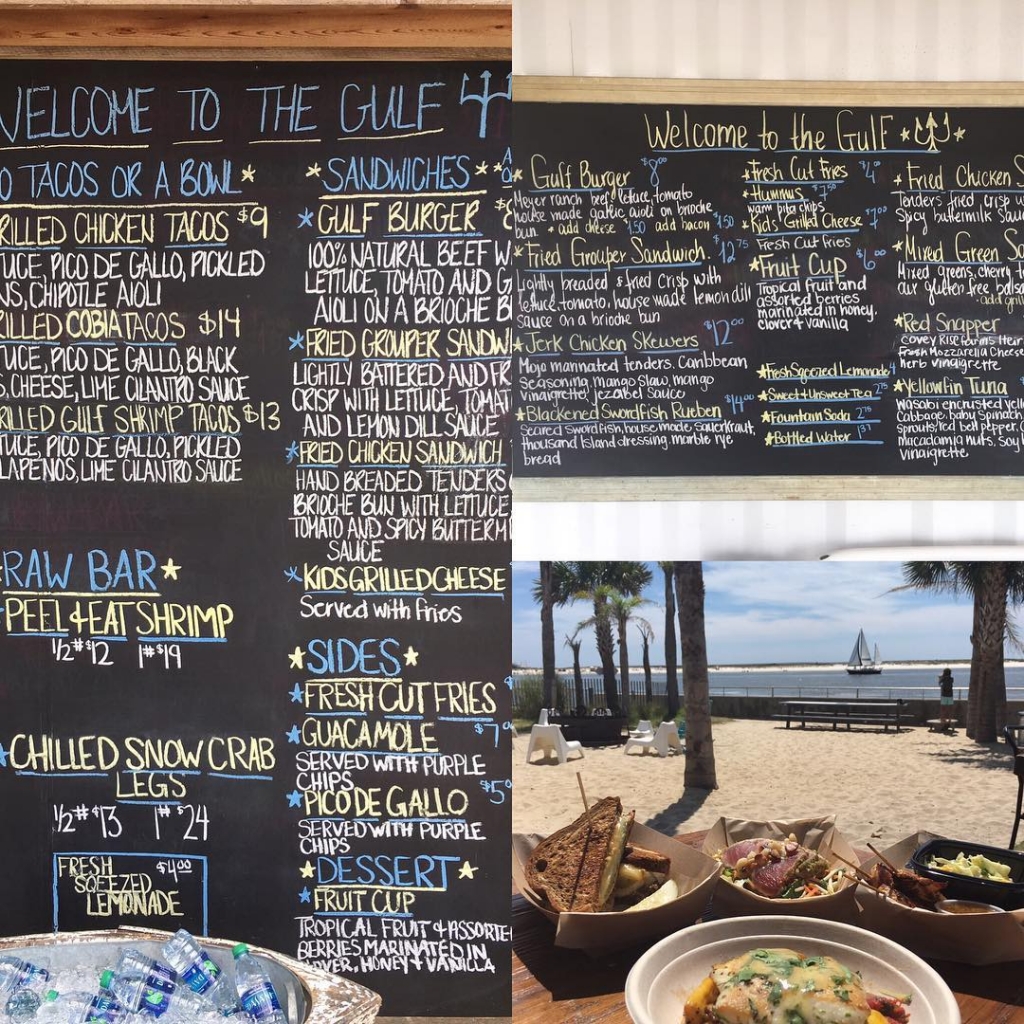 WELCOME TO THE GULF
TACOS OR A BOWL
GRILLED CHICKEN TACOS $9
LETTUCE, PICO DE GALLO, PICKLED
CHIPOTLE AIOLI
GRILLED COBIA TACOS $14
LETTUCE, PICO DE GALLO, BLACK
CHEESE, LIME CILANTRO SAUCE
GRILLED GULF SHRIMP TACOS $13
LETTUCE, PICO DE GALLO, PICKLED
JALAPENOS, LIME CILANTRO SAUCE
RAW BAR
PEEL & EAT SHRIMP
1/2# $12 1# $19
CHILLED SNOW CRAB
LEGS
1/2# $13 1# $24
FRESH $4.00
SQEEZED
LEMONADE
SANDWICHES
GULF BURGER
100% NATURAL BEEF W
LETTUCE, TOMATO AND G
AIOLI ON A BRIOCHE B
FRIED GROUPER SANDW
LIGHTLY BATTERED AND FR
CRISP WITH LETTUCE, TOMAT
AND LEMON DILL SAUCE
FRIED CHICKEN SANDWICH
HAND BREADED TENDERS
BRIOCHE BUN WITH LETTUCE
TOMATO AND SPICY BUTTERM
SAUCE
KIDS GRILLED CHEESE
Served with fries
SIDES
FRESH CUT FRIES
GUACAMOLE $7
SERVED WITH PURPLE
CHIPS
PICO DE GALLO $5
SERVED WITH PURPLE
CHIPS
DESSERT
FRUIT CUP
TROPICAL FRUIT & ASSORTE
BERRIES MARINATED IN
CLOVER, HONEY & VANILLA
Welcome to the Gulf
Gulf Burger $8
Meyer ranch beef, lettuce, tomato
house made garlic aioli on brioche
bun. + add cheese $.50 add bacon $1.50
Fried Grouper Sandwich $12.75
Lightly breaded & fried crisp with
lettuce, tomato, house made lemon dill
sauce on a brioche bun
Jerk Chicken Skewers $12.00
Mojo marinated tenders. Caribbean
Seasoning, mango slaw, mango
vinaigrette, jezabel sauce
Blackened Swordfish Rueben $14.00
Seared swordfish, house made sauerkraut,
thousand Island dressing, marble rye
bread
Fresh Cut Fries $4
Humnus $7.50
warm pita chips
Kid's Grilled Cheese $7.00
Fresh Cut fries
Fruit Cup $6
Tropical fruit and
assorted berries
marinated in honey,
clover & vanilla
Fresh Sqeezed Lemonade 4
Sweet & Unsweet Tea 2.75
Fountain Soda 2.75
Bottled Water
Fried Chicken S
Tenders fried crisp w
Spicy buttermilk sauc
Mixed Green Sa
Mixed greens, cherry t
our gluten free balsa
-add gril
Red Snapper
covey rise farms heir
Fresh Mozzarella Cheese
herb vinaigrette
Yellowfin Tuna
Wasabi encrusted yello
Cabbage, baby Spinach,
sprouts, red bell pepper, C
Macadamia nuts, Soy
vinaigrette